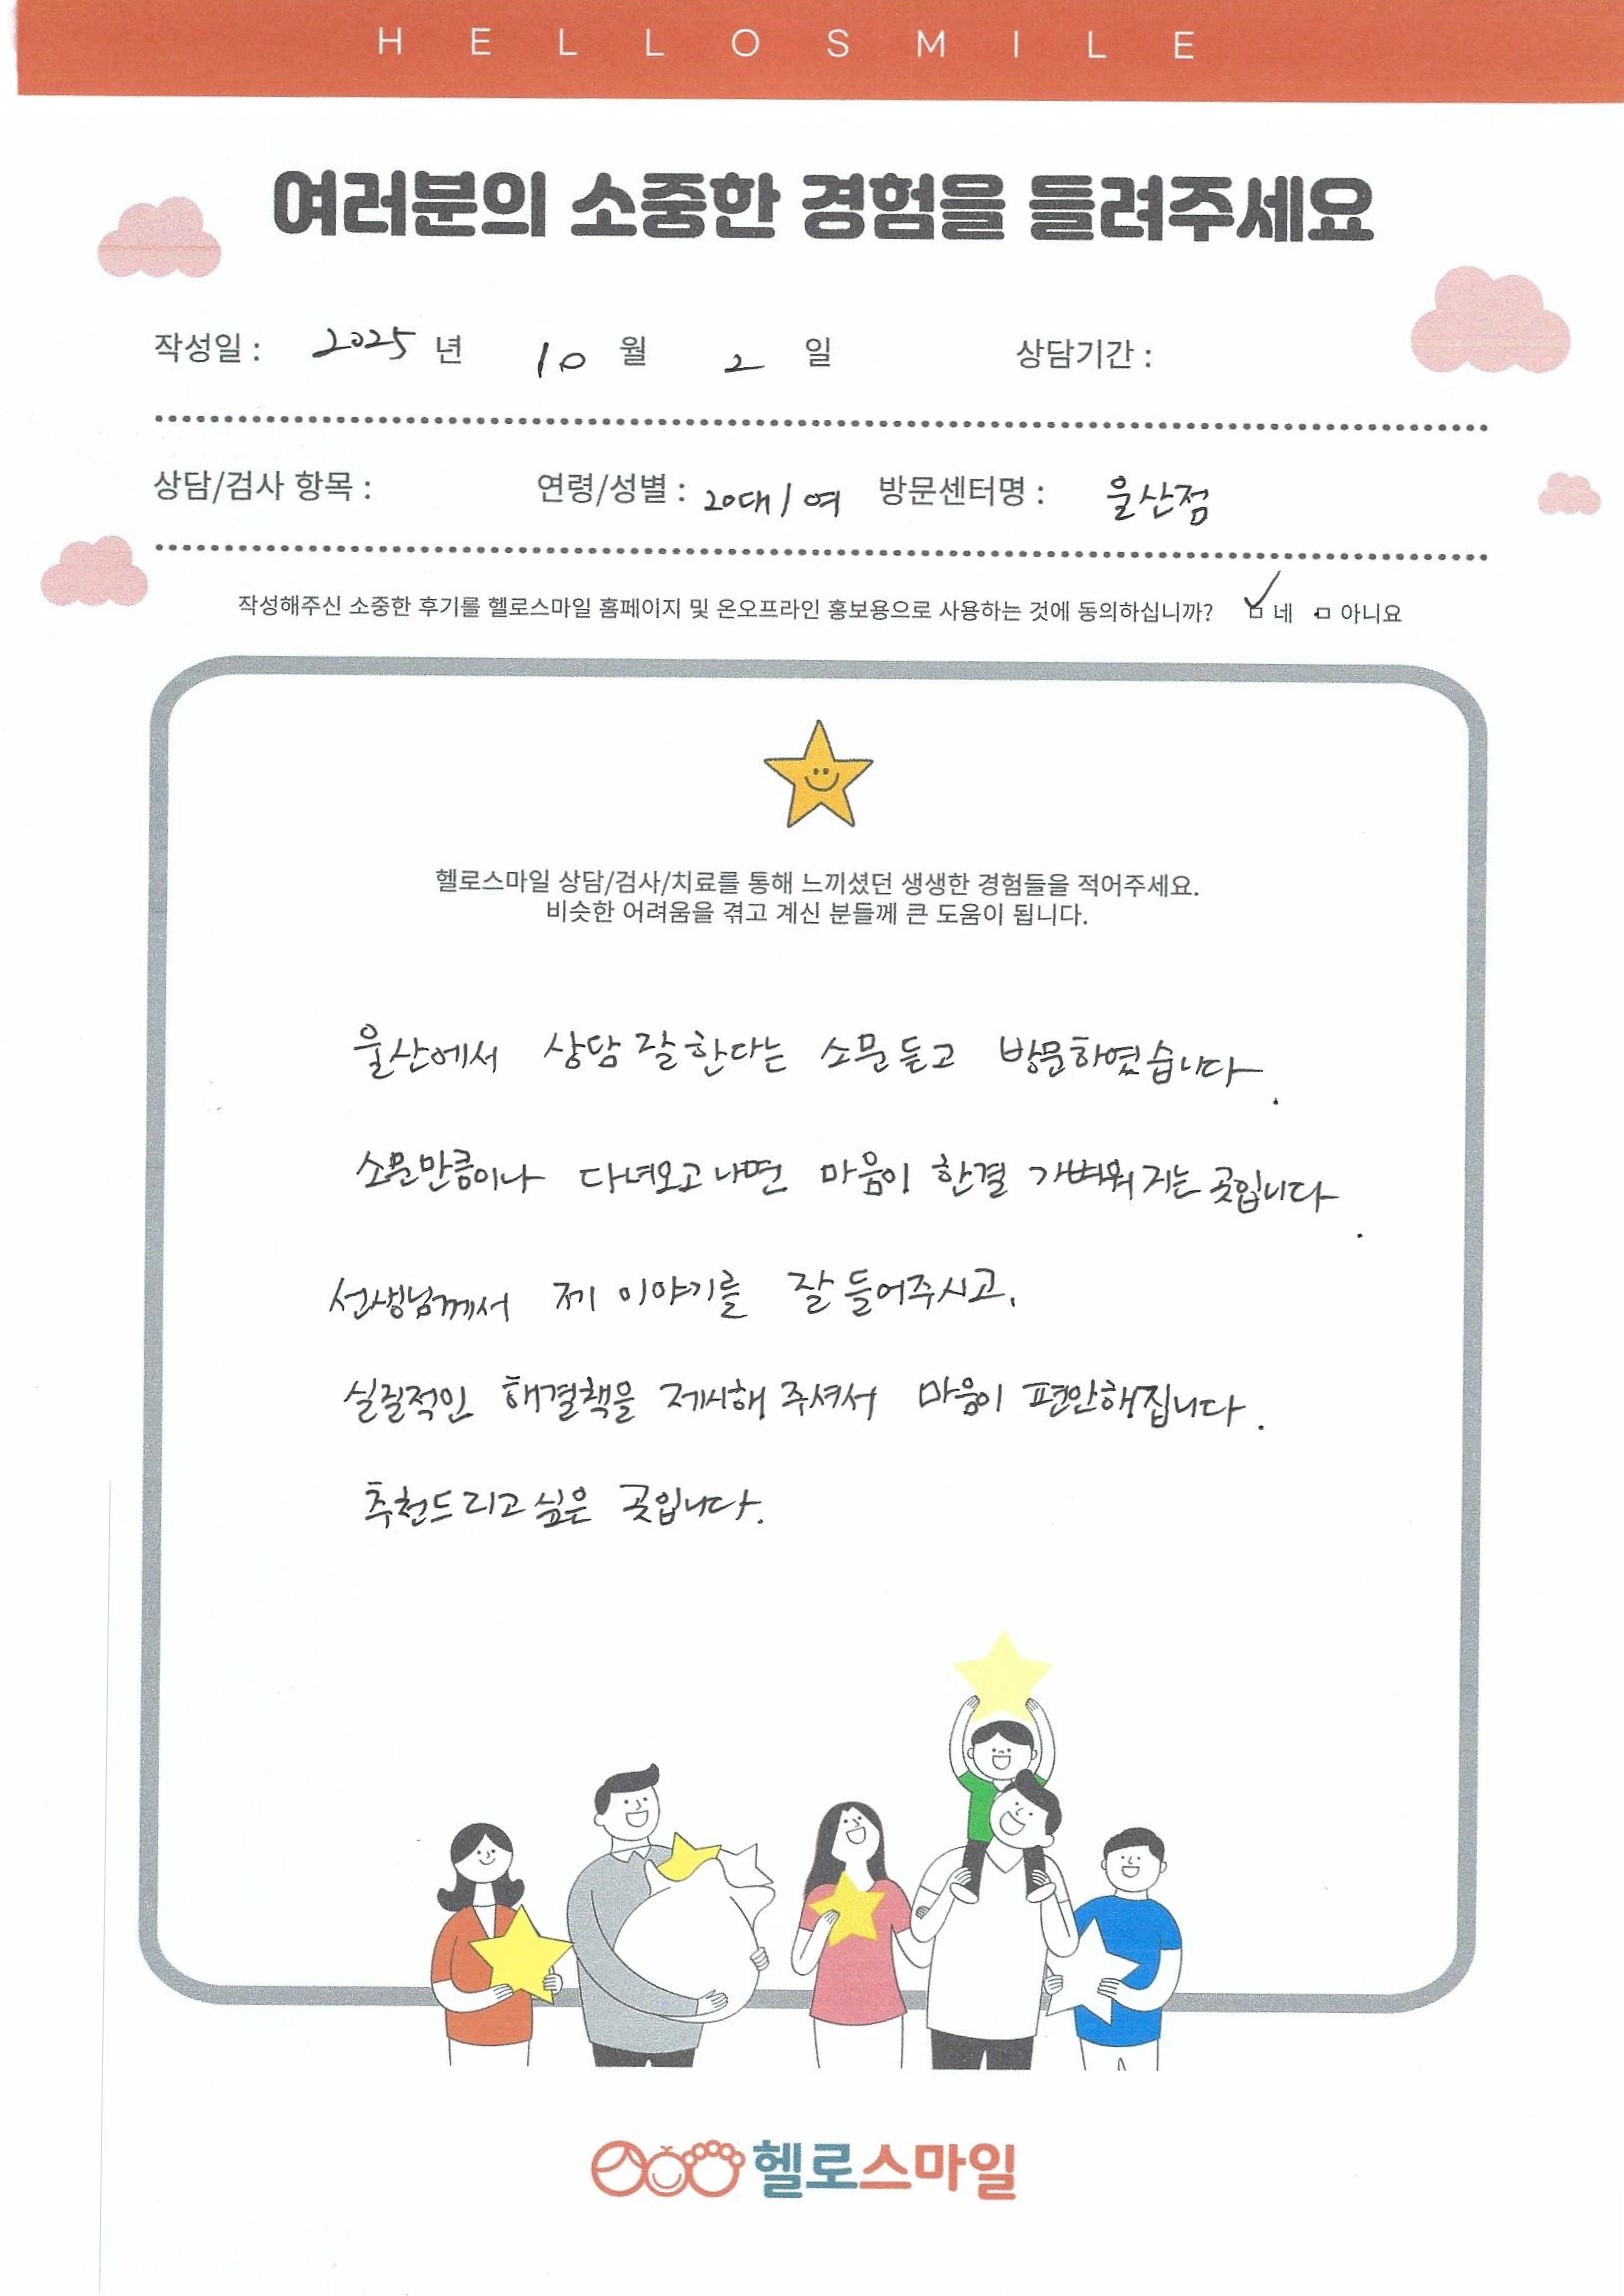 HELLOSMILE
여러분의 소중한 경험을 들려주세요
작성일 : 2025 년 10 월 2 일 상담기간 :
상담/검사 항목 : 연령/성별 : 20대 / 여 방문센터명 : 울산점
작성해주신 소중한 후기를 헬로스마일 홈페이지 및 온오프라인 홍보용으로 사용하는 것에 동의하십니까? ☑ 네 □ 아니요
헬로스마일 상담/검사/치료를 통해 느끼셨던 생생한 경험들을 적어주세요.
비슷한 어려움을 겪고 계신 분들께 큰 도움이 됩니다.
울산에서 상담 잘한다는 소문 듣고 방문하였습니다.
소문만큼이나 다녀오고 나면 마음이 한결 가벼워지는 곳입니다.
선생님께서 제 이야기를 잘 들어주시고,
실질적인 해결책을 제시해 주셔서 마음이 편안해집니다.
추천드리고 싶은 곳입니다.
헬로스마일